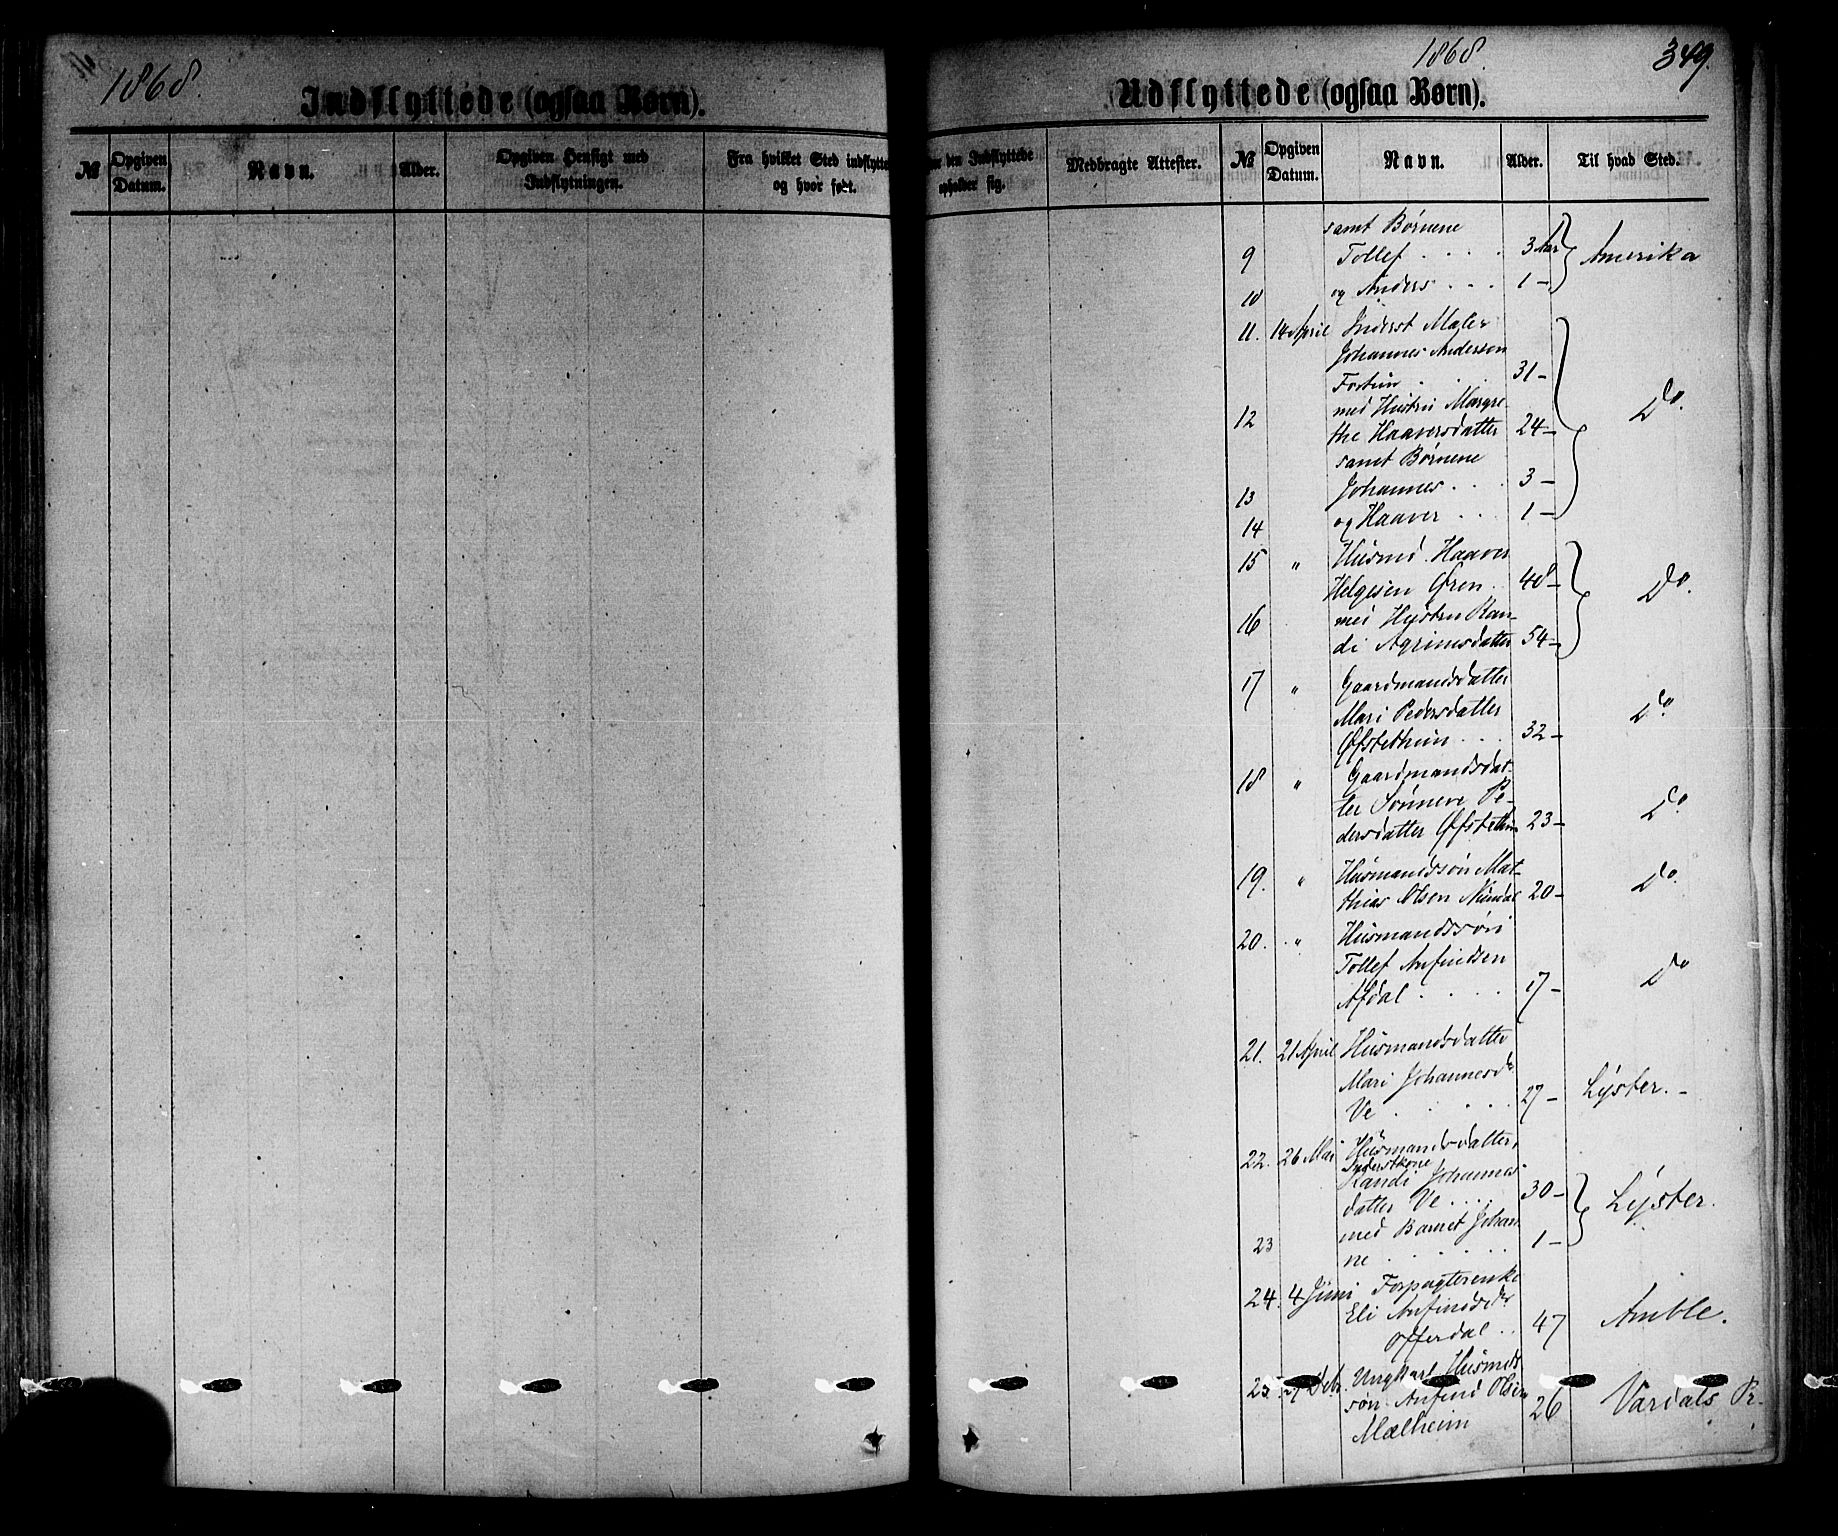 1868.
Indflyttede (ogsaa Børn).
№
Opgiven Datum.
Navn.
Alder.
Opgiven Hensigt med Indflytningen.
Fra hvilket Sted indflytte
og hvor født.
den Indflyttede
opholder sig.
Medbragte Attester.
1868.
349.
Udflyttede (ogsaa Børn).
№
Opgiven Datum.
Navn.
Alder.
Til hvad Sted.
samt Børnene
9 Tollef . . . . 3 Aar Amerika
10 og Anders . . . 1 –
11. 14 April Inderst Maler
Johannes Andersen
Fortun . . . 31 – Do.
12 med Hustru Margre-
the Haaversdatter 24 –
samt Børnene
13 Johannes . . . 3 –
14 og Haaver . . . 1 –
15 " Husmd. Haaver
Helgesen Øren . 48 – Do.
16 med Hustru Ran-
di Agrimsdatter 54 –
17 " Gaardmandsdatter
Mari Pedersdatter
Øfstethun . . . 32 – Do
18 " Gaardmandsdat-
ter Sønneve Pe-
dersdatter Øfstethun 23 – Do
19. " Husmandssøn Mat-
thias Olsen Mundal 20 – Do.
20. " Husmandssøn
Tollef Anfindsen
Afdal . . . . 17 – Do
21. 21 April Husmandsdatter
Mari Johannesdr
Ve . . . . . 27 – Lyster. –
22. 26 Mai Husmandsdatter,
Inderstkone
Randi Johannes
datter Ve . . . . 30 – Lyster.
23 med Barnet Johan
ne . . . . . 1 –
24. 4 Juni Forpagterenke
Eli Anfindsdr
Offerdal . . 47 Amble.
25. Ungkarl Husmds
søn Anfind Olsen 26 Vardals Pr.
Mælheim